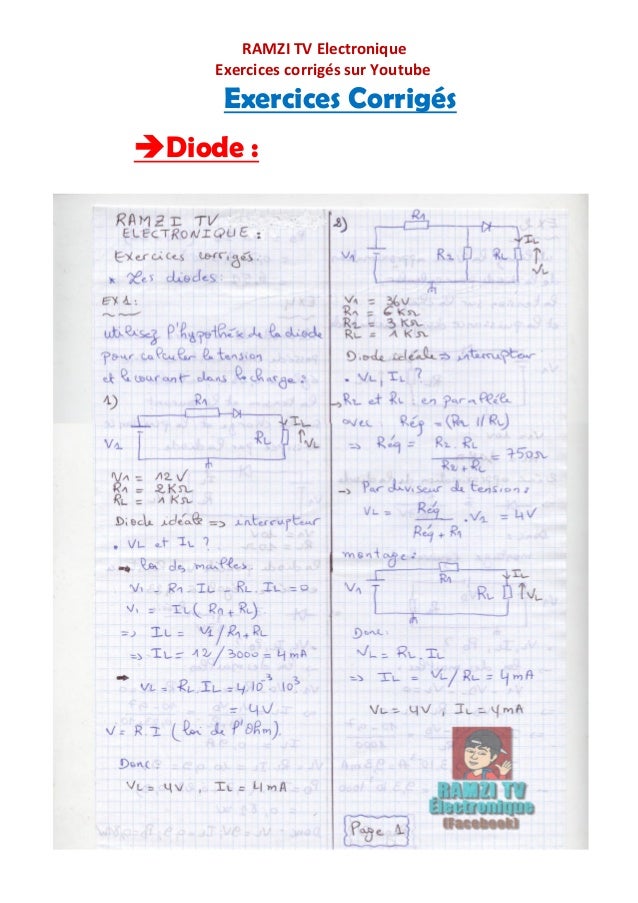 RAMZI TV Electronique
Exercices corrigés sur Youtube
Exercices Corrigés
➔Diode :
RAMZI TV
ELECTRONIQUE :
Exercices corrigés.
* Les diodes:
EX1:
utilisez l'hypothèse de la diode
pour calculer la tension
et le courant dans la charge :
1)
R1
IL
V1
RL
VL
V1 = 12V
R1 = 2KΩ
RL = 1KΩ
Diode idéale => interrupteur
• VL et IL ?
➔ loi des mailles.
V1 - R1.IL - RL.IL = 0
V1 = IL(R1+RL)
=> IL = V1/R1+RL
=> IL = 12/3000 = 4mA
➔ VL = RL.IL = 4.10⁻³.10³
= 4V
V = R.I (loi de l'Ohm).
Donc:
VL = 4V, IL = 4mA
2)
R1
IL
V1
R2
RL
VL
V1 = 36V
R1 = 6KΩ
R2 = 3KΩ
RL = 1KΩ
Diode idéale => interrupteur
• VL, IL ?
→ R2 et RL : en parallèle
avec : Réq = (R2 // RL)
=> Réq = R2.RL / R2+RL = 750Ω
→ Par diviseur de tension:
VL = Réq / Réq + R1 . V1 = 4V
montage:
R1
IL
V1
RL
VL
Donc:
VL = RL.IL
=> IL = VL/RL = 4mA
VL = 4V, IL = 4mA
RAMZI TV
Électronique
(Facebook)
Page 1